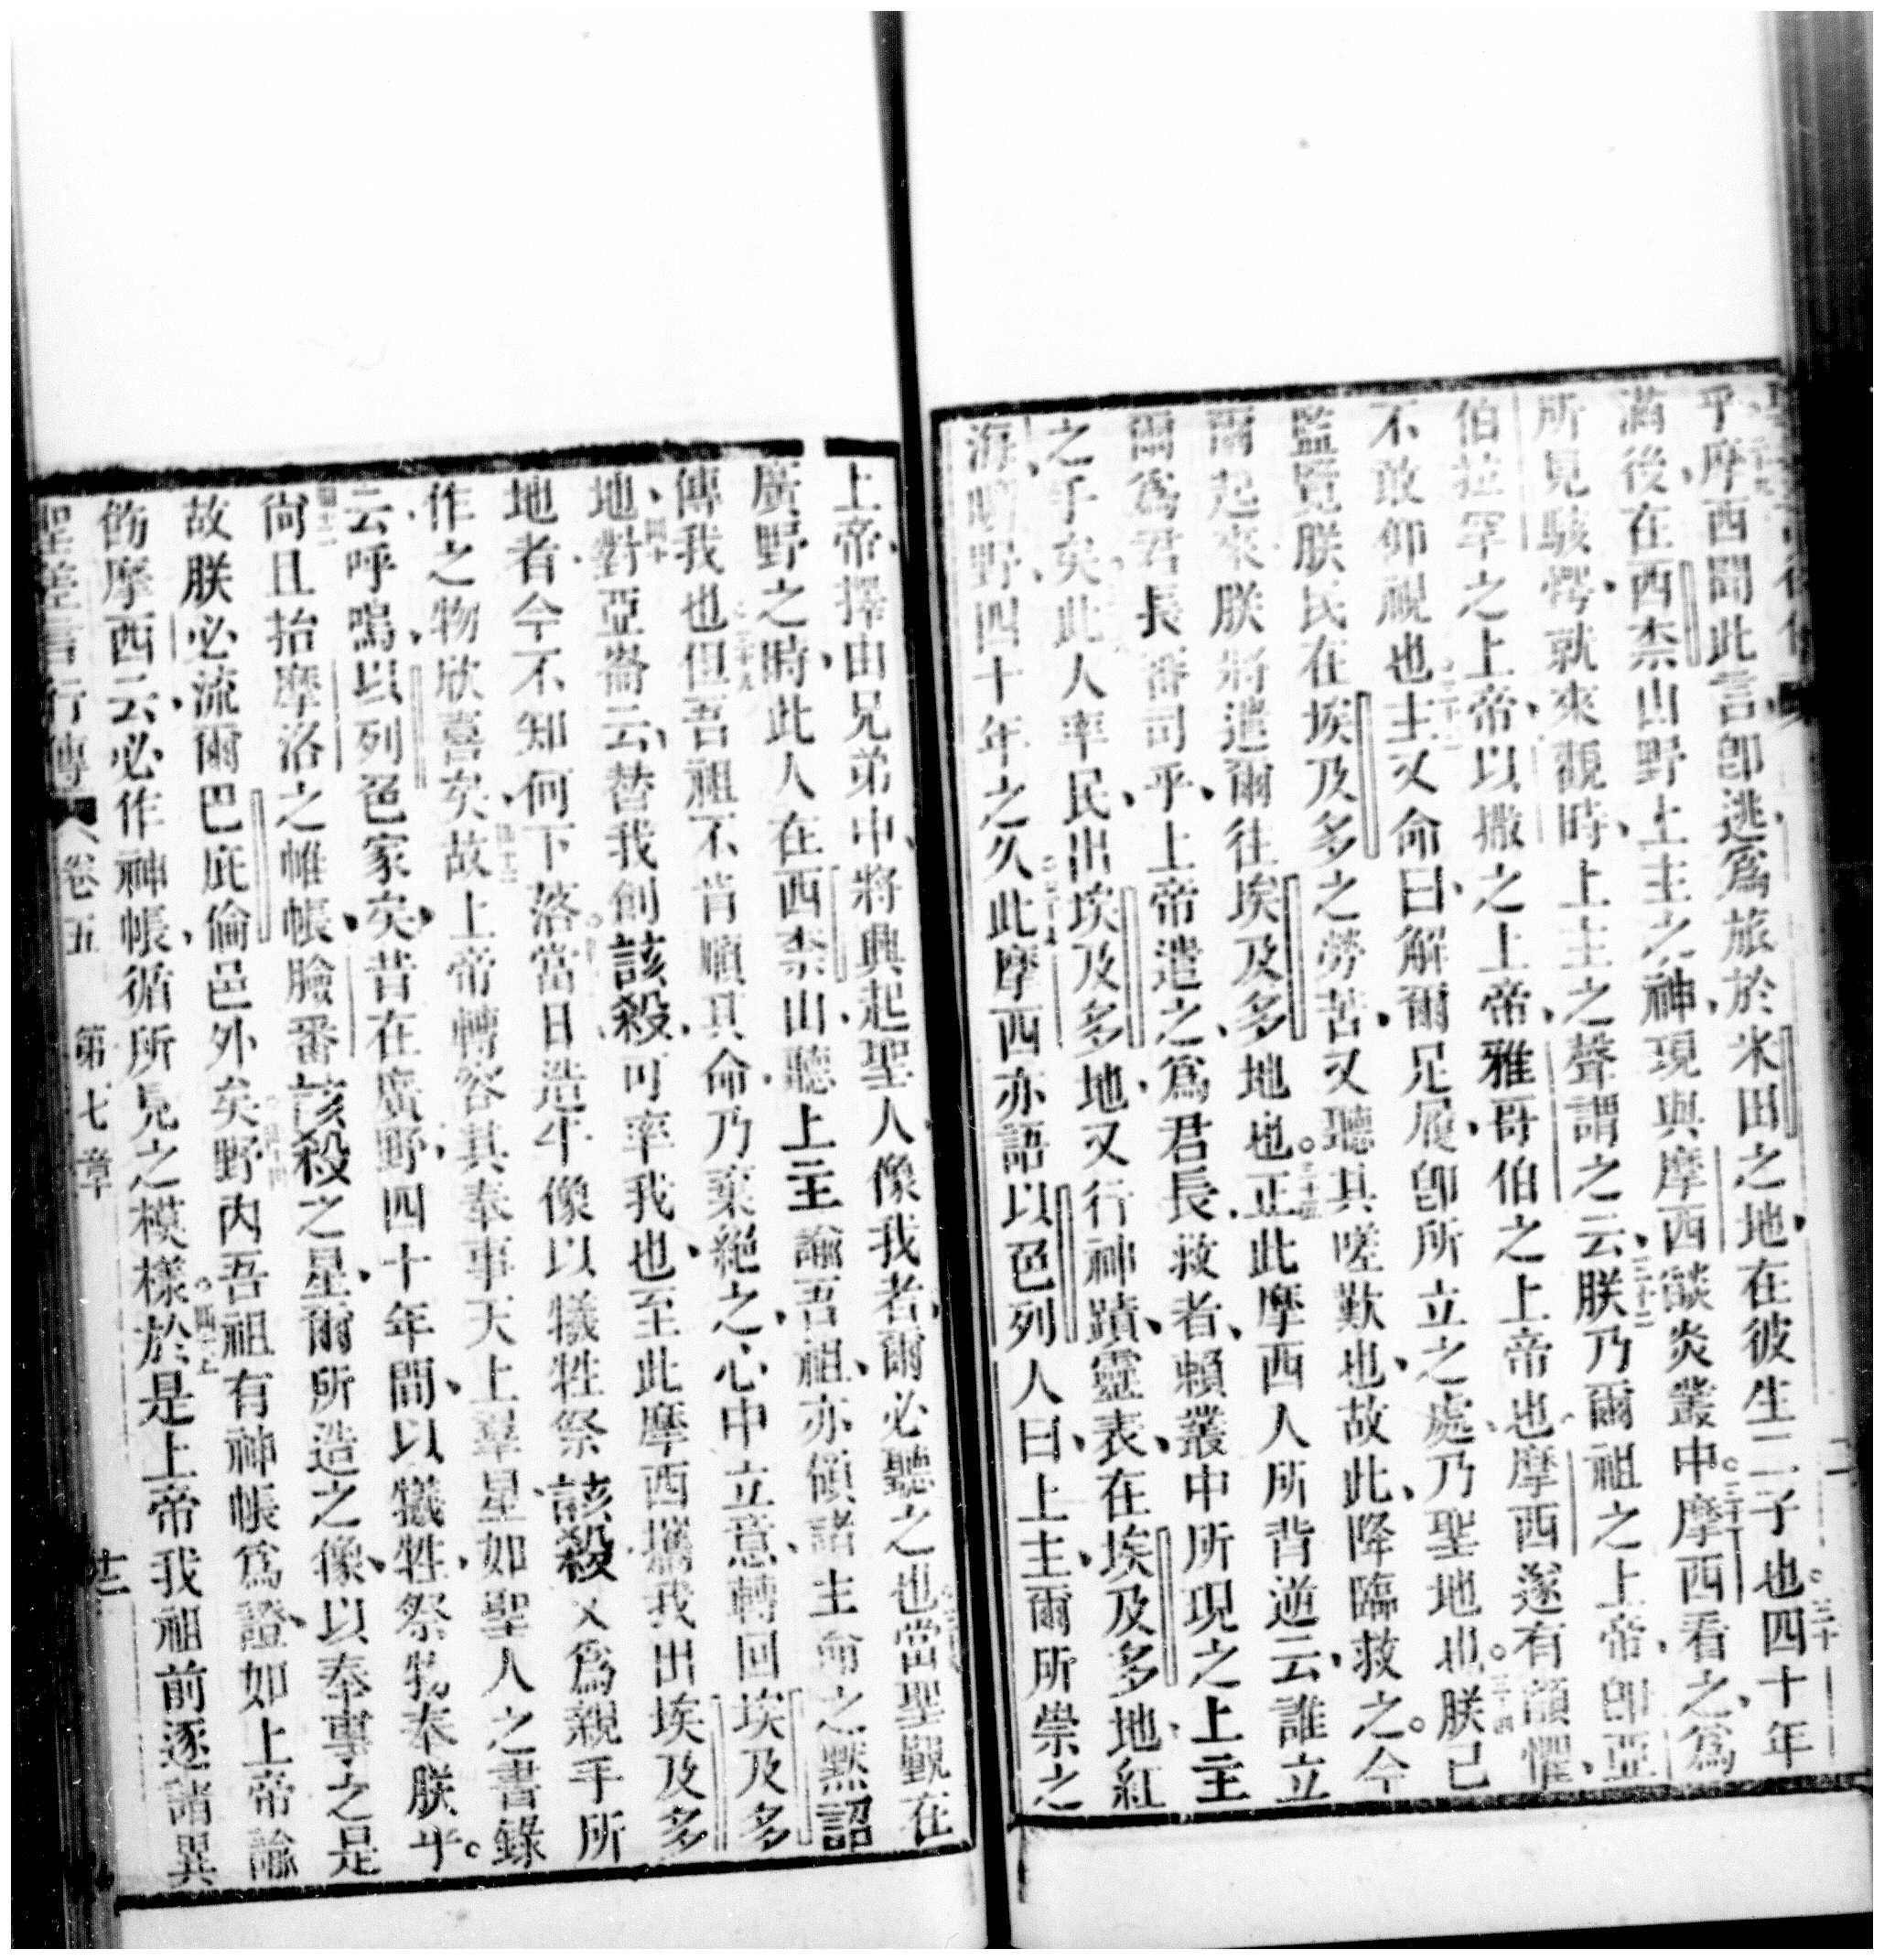 乎、摩西聞此言、卽逃爲旅於米田之地、在彼生二子也。三十四十年
滿後、在西柰山野、上主之神、現與摩西燄炎叢中。摩西看之、爲
所見駭愕、就來觀時、上主之聲謂之云、三十二朕乃爾祖之上帝、卽亞
伯拉罕之上帝、以撒之上帝、雅哥伯之上帝也、摩西遂有顫懼、
不敢仰視也。主又命曰、解爾足履、卽所立之處、乃聖地也。三十四朕已
監覽朕民在埃及多之勞苦、又聽其嗟歎也、故此、降臨救之。今
爾起來、朕將遣爾往埃及多地也。三十五正此摩西人所背逆云、誰立
爾爲君長審司乎、上帝遣之、爲君長、救者、賴叢中所現之上主
之手矣、此人率民、出埃及多地、又行神蹟、靈表、在埃及多地、紅
海、曠野、四十年之久、三十七此摩西亦語以色列人曰、上主、爾所崇之
上帝、擇由兄弟中、將興起聖人、像我者、爾必聽之也。當聖覲在
廣野之時、此人在西柰山、聽上主諭吾祖、亦傾諸主命之默詔
傳我也。三十九但吾祖不肯順其命、乃棄絕之、心中立意、轉回埃及多
地、四十對亞崙云、替我創該殺、可率我也、至此摩西攜我出埃及多
地者、今不知何下落。當日造牛像、以犧牲祭該殺、又爲親手所
作之物欣喜矣、四十二故上帝轉容其奉事天上羣星、如聖人之書錄
云、呼嗚、以列色家矣、昔在廣野、四十年間、以犧牲、祭物奉朕乎。
四十三尙且抬摩洛之帷帳、臉番該殺之星、爾所造之像、以奉事之、是
故朕必流爾巴庇倫邑外矣。四十四野內吾祖有神帳爲證、如上帝諭
飭摩西云、必作神帳、循所見之模樣。四十五於是上帝我祖前逐諸異
聖差言行傳 卷五 第七章 廿一